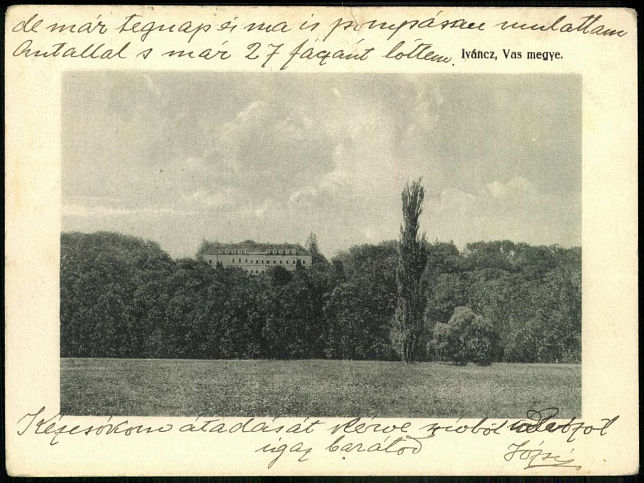 de már tegnap és ma is pompásan mulattam
Antallal s már 27 fácánt lőttem.
Iváncz, Vas megye.
Kézcsókom átadását kérve szívből
igaz barátod
Józsi